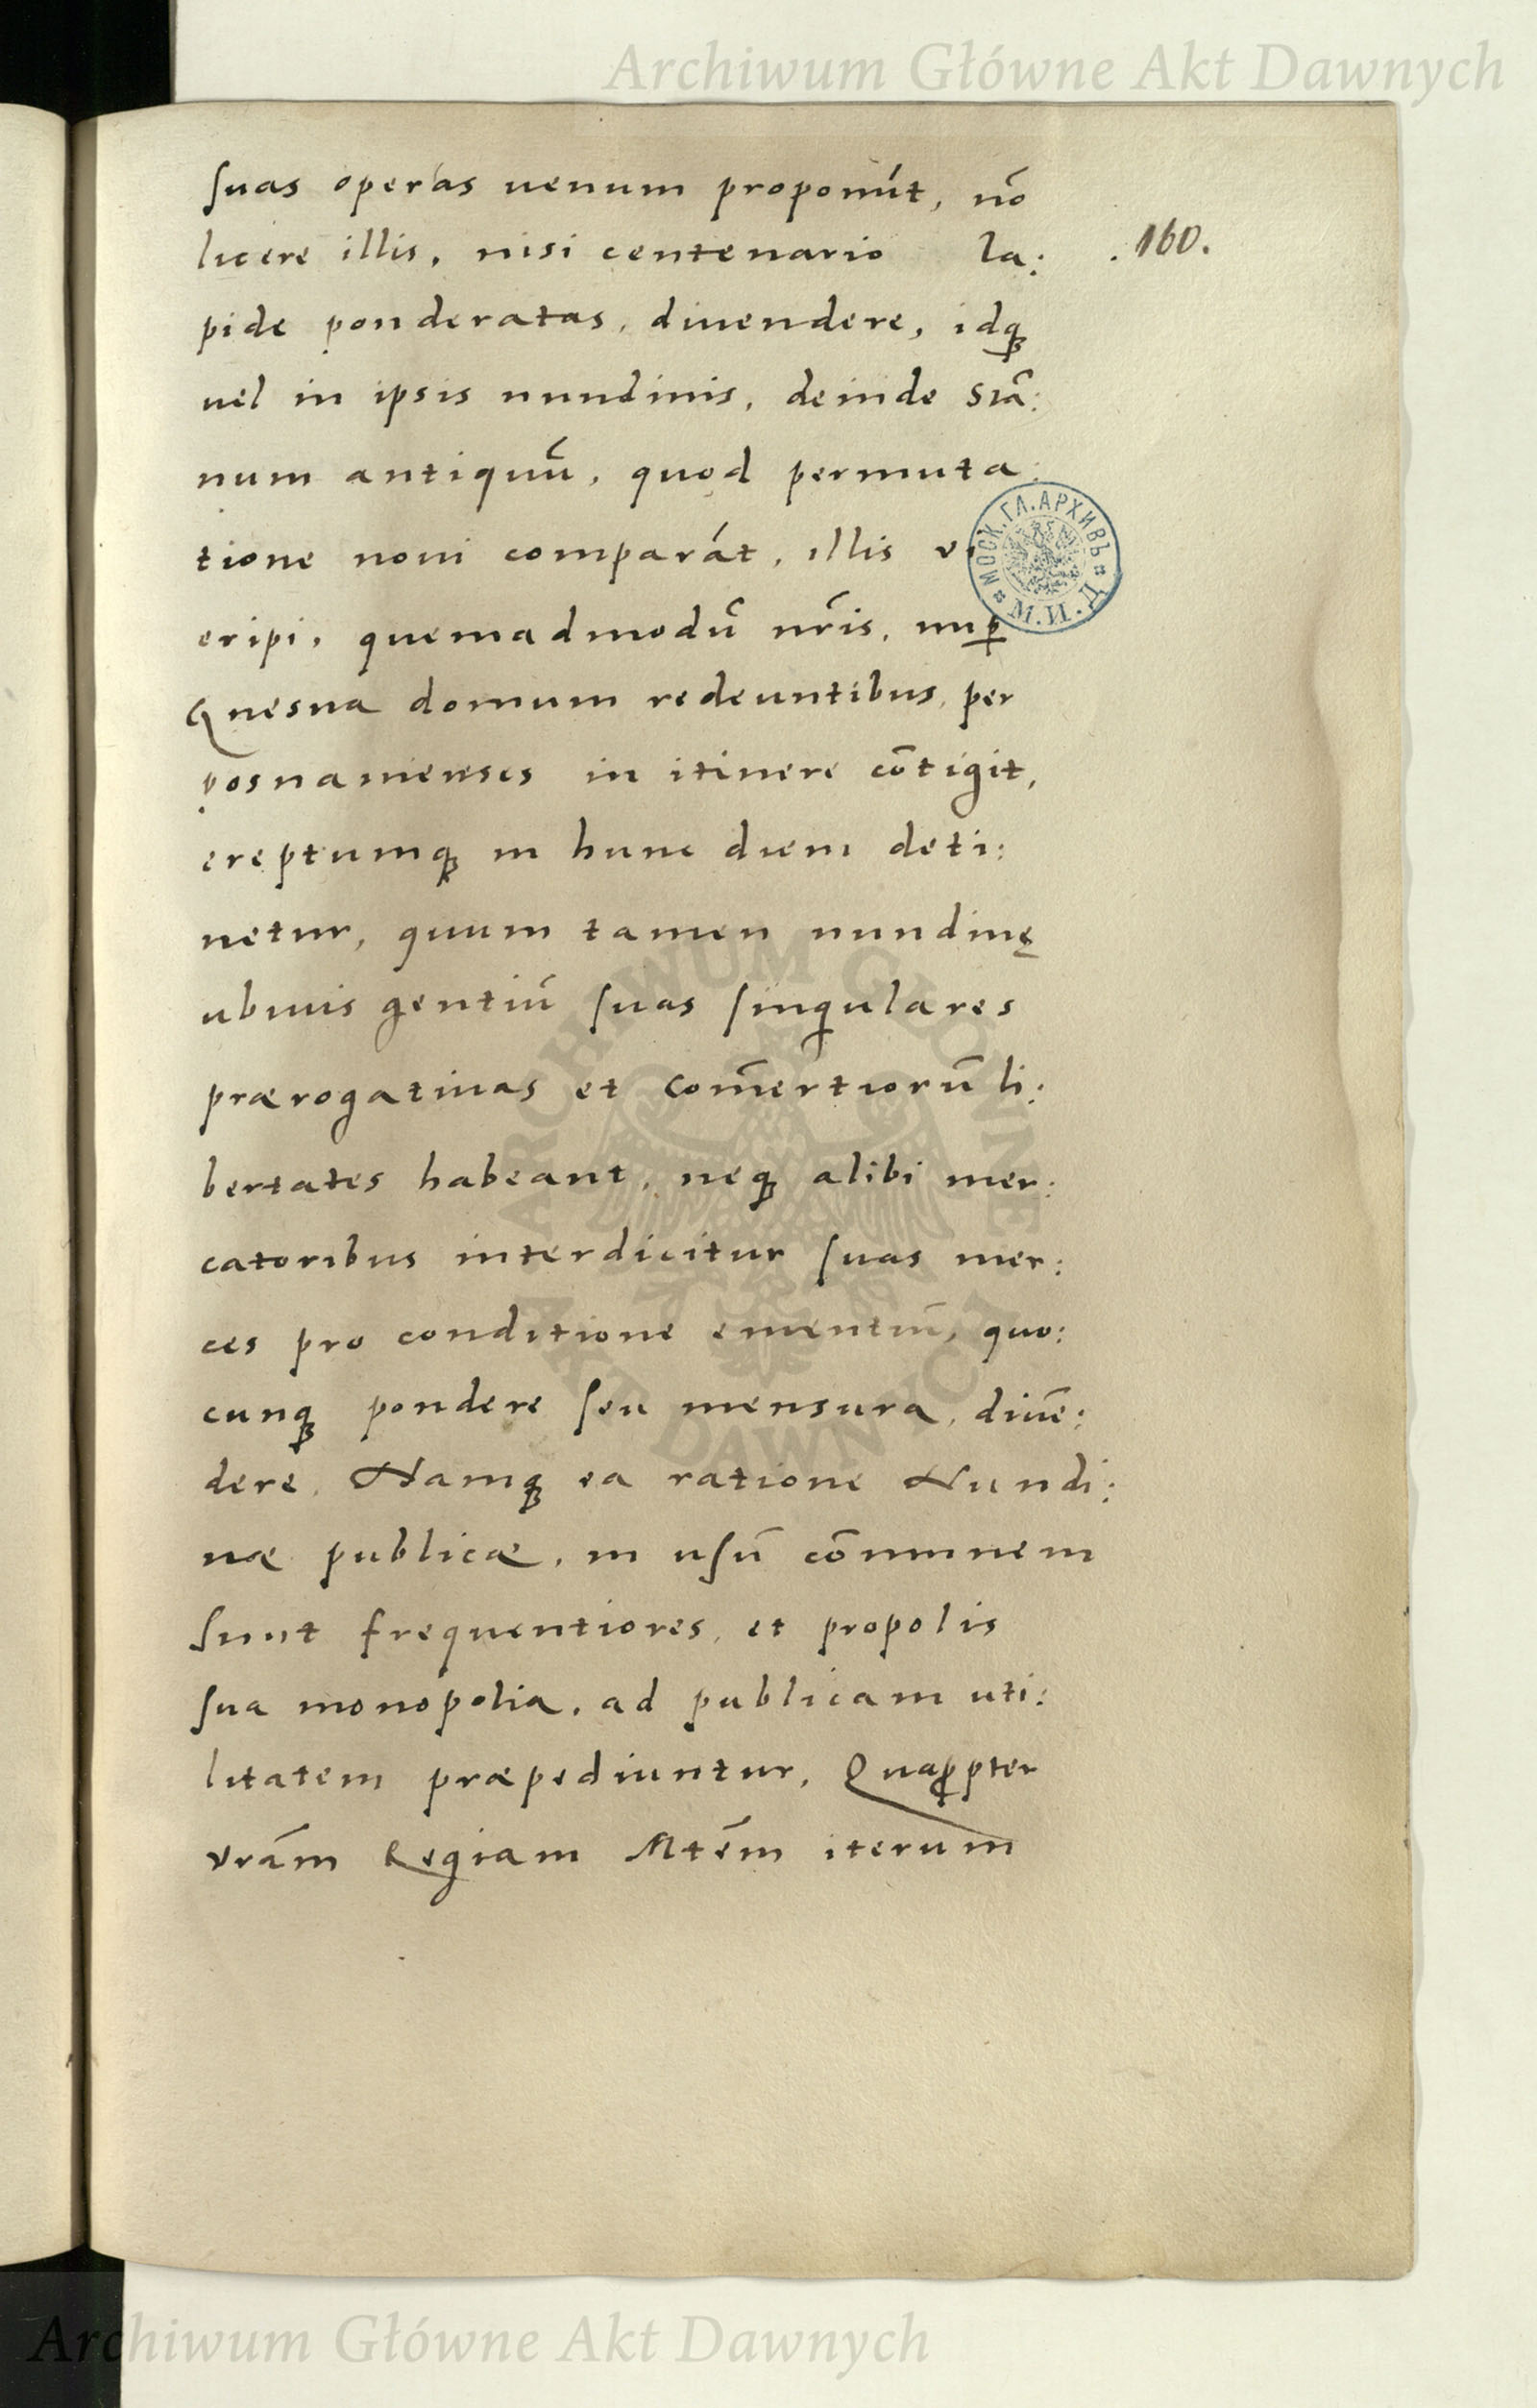 Archiwum Główne Akt Dawnych
suas operas uenum proponūt, nō
licere illis, nisi centenario la:
160.
pide ponderatas, diuendere, idq̃
uel in ipsis nundinis, deinde Stā:
num antiquū, quod permuta:
tione noui comparāt, illis vi
МОСК. ГЛ. АРХИВЪ
М. И. Д.
eripi, quemadmodū nr̄is, nuꝑ
Gnesna domum redeuntibus, per
posnanienses in itinere cōtigit,
ereptumq̃ in hunc diem deti:
netur, quum tamen nundinę
ubiuis gentiū suas singulares
prærogatiuas et com̄ertiorū li:
bertates habeant, neq̃ alibi mer:
catoribus interdicitur suas mer:
ces pro conditione ementiū, quo:
cunq̃ pondere seu mensura, diuē:
dere. Namq̃ ea ratione Nundi:
næ publicæ, in usū cōmunem
sunt frequentiores, et propolis
sua monopolia, ad publicam uti:
litatem præpediuntur. Quaꝓpter
vrām Regiam Mtēm iterum
ARCHIWUM GŁÓWNE
AKT DAWNYCH
Archiwum Główne Akt Dawnych